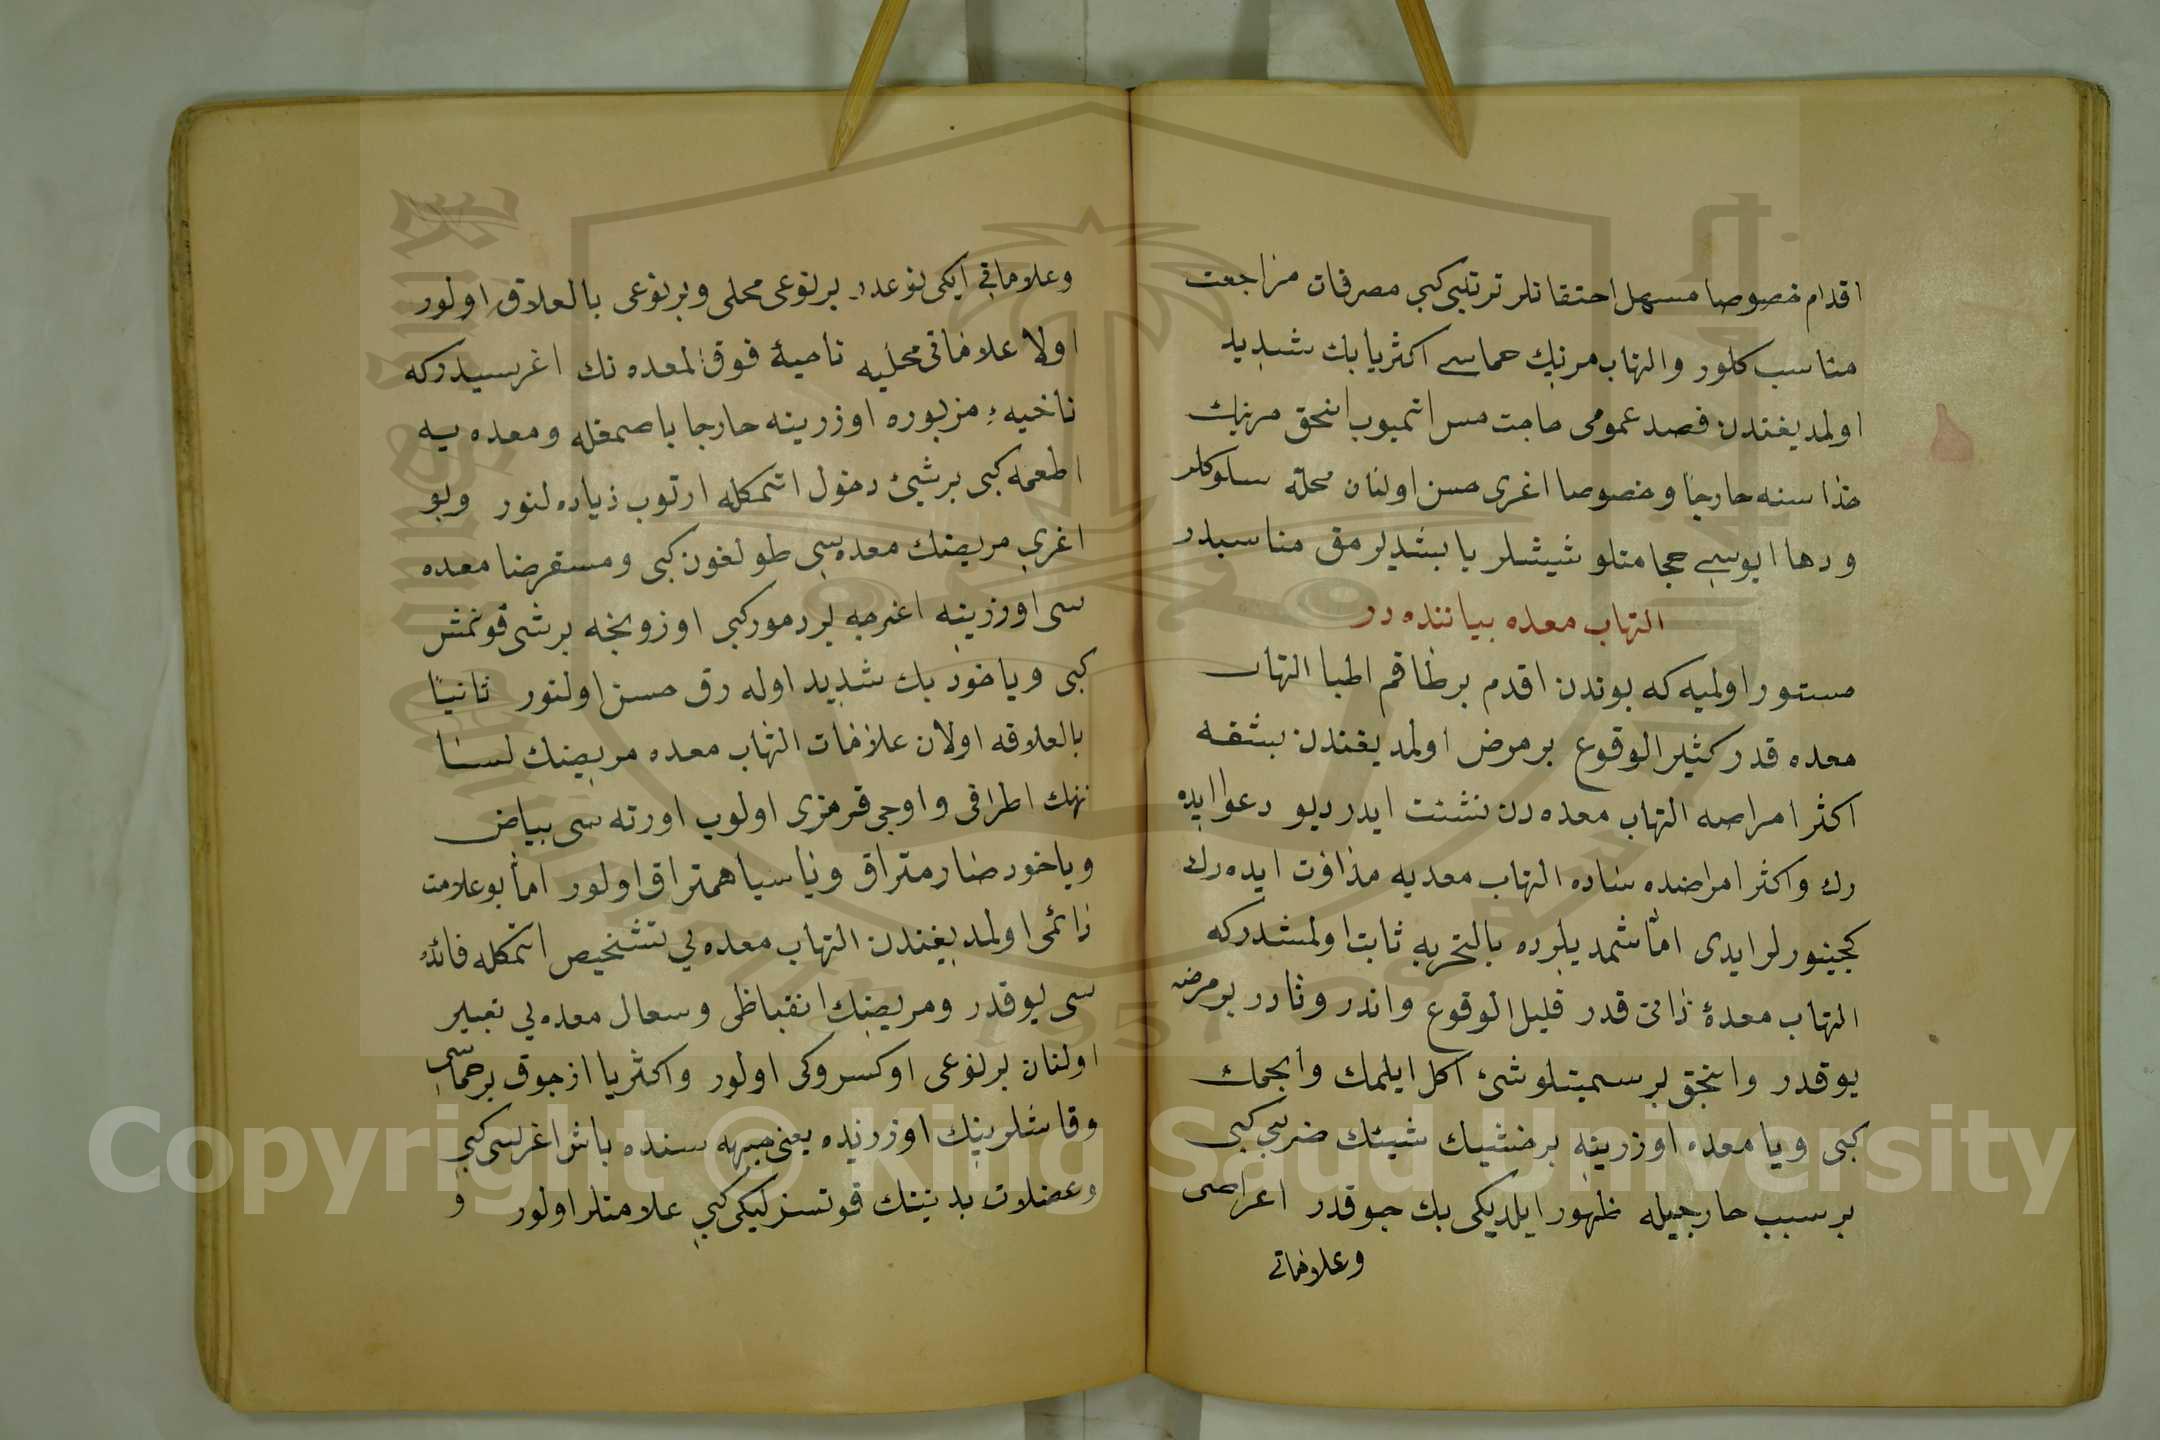 اقدام خصوصا مسهل احتقانلر ترتيبی كبی مصرفات مراجعت
مناسب كلور والتهاب مرنك حماسی اكثريا بك شديد
اولمديغندن فصد عمومی حاجت مس اتميوب انحق مرنك
حذاسنه حارجا وخصوصا اغری حسن اولنان محله سلوكلر
ودها ايوسی حجامتلو شيشلر يابشديرمق مناسبدر
التهاب معده بياننده در
مستور اولميه كه بوندن اقدم برطاقم اطبا التهاب
معده قدر كثير الوقوع بر مرض اولمديغندن بشقه
اكثر امراضه التهاب معده دن نشئت ايدر ديو دعوا ايده
رك واكثر امراضده ساده التهاب معديه مذاوت ايده رك
كچينورلر ايدی امّا شمديلرده بالتجربه ثابت اولمشدركه
التهاب معدۀ ذاتی قدر قليل الوقوع واندر ونادر بر مرض
يوقدر وانجق بر سميتلو شئ اكل ايلمك وايچمك
كبی ويا معده اوزرينه بر خشيك شيئك ضربی كبی
بر سبب حارجيله ظهور ايلديكی بك چوقدر اعراضی
وعلاماتی
وعلاماتی ايكی نوعدر بر نوعی محلی وبر نوعی بالعلاقه اولور
اولا علاماتی محليه ناحيۀ فوق المعده نك اغريسيدركه
ناحيهء مزبوره اوزرينه حارجا باصمغله ومعده يه
اطعمه كبی بر شئ دخول اتمكله ارتوب زياده لنور وبو
اغری مريضنك معده سی طولغون كبی ومستقرضا معده
سی اوزرينه اغرجه بر دمور كبی اوزونجه بر شی قونمش
كبی وياخود بك شديد اوله رق حسن اولنور ثانيًا
بالعلاقه اولان علامات التهاب معده مريضنك لسا
ننك اطرافی واوجی قرمزی اولوب اورته سی بياض
وياخود صارمتراق ويا سياهمتراق اولور امّا بو علامت
دائمی اولمديغندن التهاب معده يی تشخيص اتمكله فائدۀ
سی يوقدر ومريضنك انقباظی وسعال معده يی تعبير
اولنان بر نوعی اوكسروكی اولور واكثريا از چوق بر حماسی
وقاشلرينك اوزرنده يعنی جبهه سنده باش اغريسی كبی
وعضلات بدنينك قوتسزليكی كبی علامتلر اولور و
Copyright © King Saud University
1957